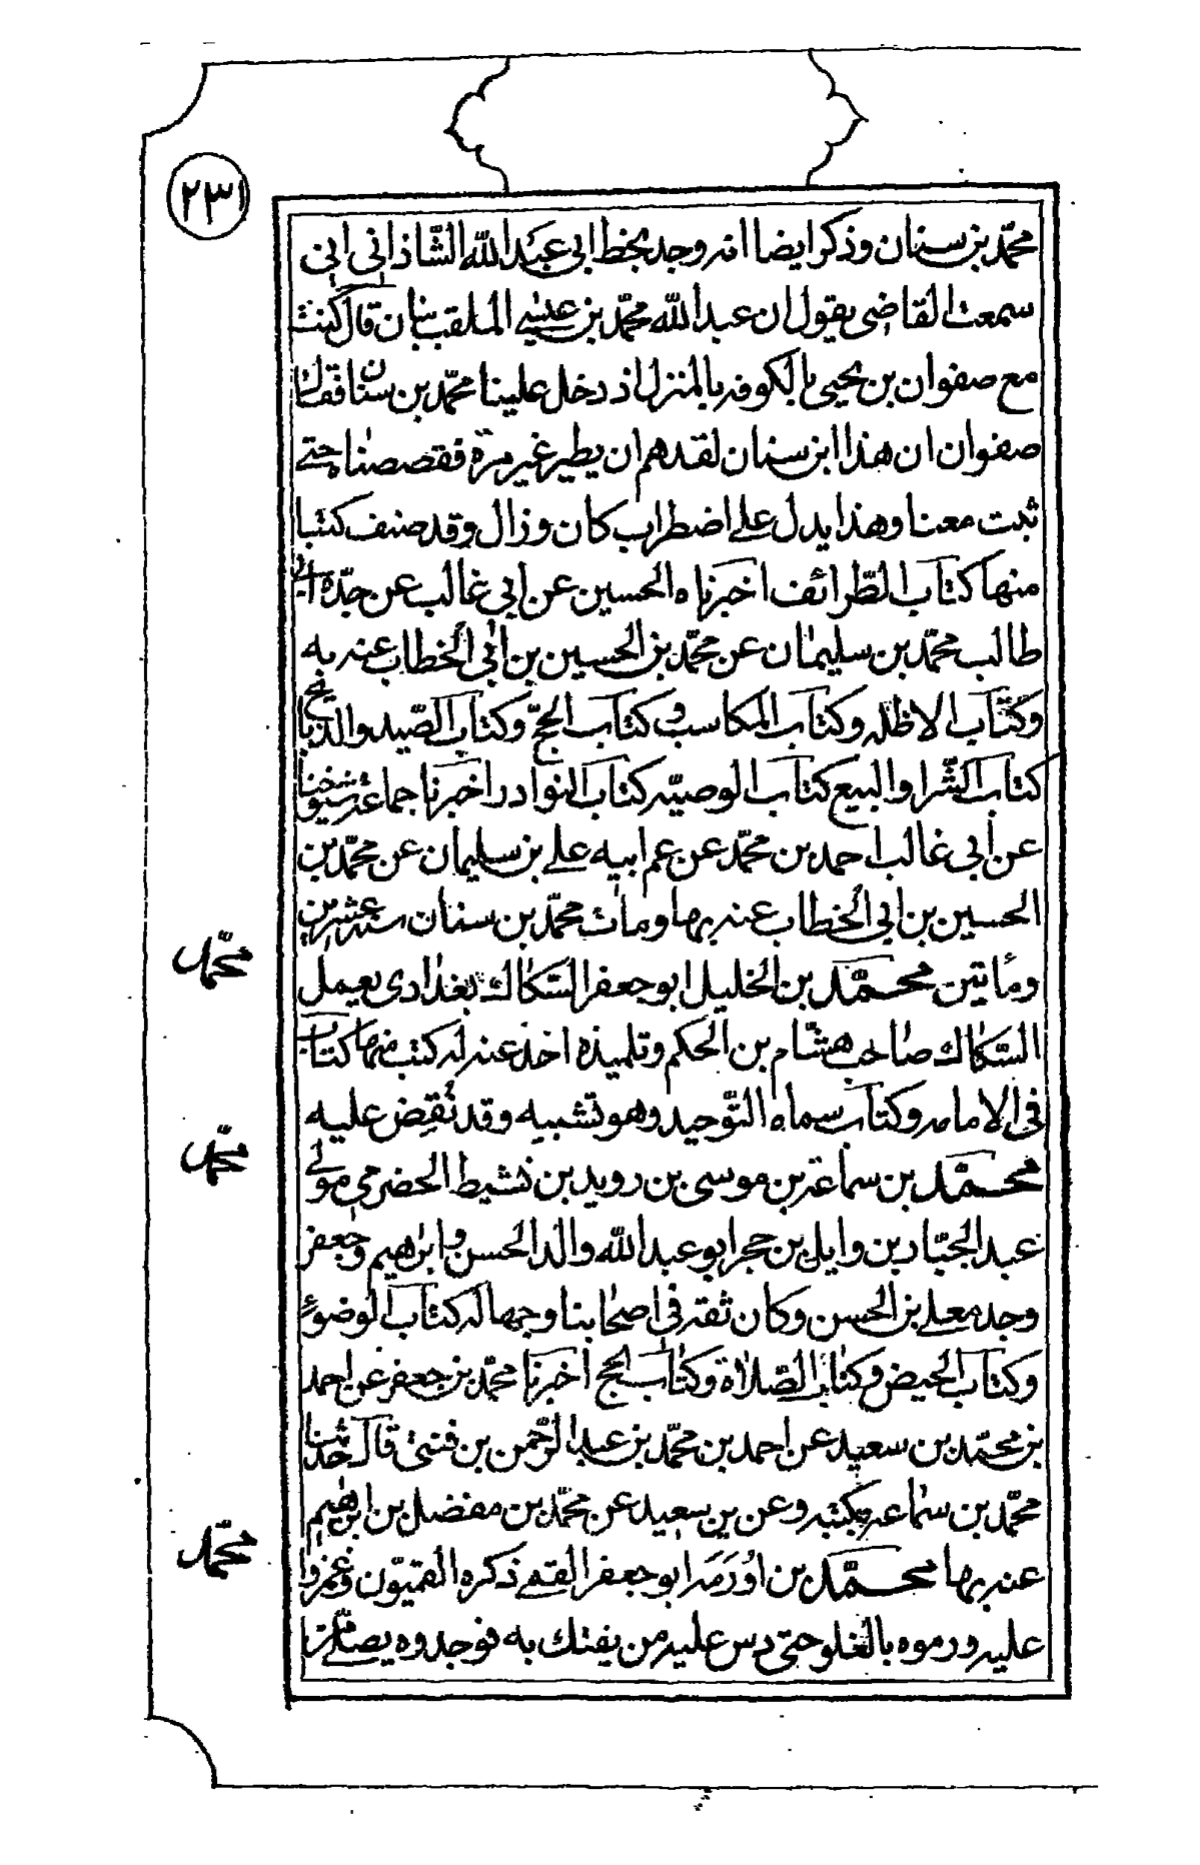 ٢٣١
محمّد بن سنان وذكر ايضا انه وجد بخط ابى عبد الله الشّاذانى انى
سمعت القاضى يقول ان عبد الله محمّد بن عيسى الملقب ببنان قال كنت
مع صفوان بن يحيى بالكوفه بالمنزل اذ دخل علينا محمّد بن سنان فقال
صفوان ان هذا ابن سنان لقد هم ان يطير غير مرّة فقصصناه حتى
ثبت معنا وهذا يدل على اضطراب كان وزال وقد صنف كتبا
منها كتاب الطّرائف اخبرناه الحسين عن ابى غالب عن جدّه ابى
طالب محمّد بن سليمان عن محمّد بن الحسين بن ابى الخطاب عنه به
وكتاب الاظله وكتاب المكاسب وكتاب الحجّ وكتاب الصّيد والذبائح
كتاب الشّرا والبيع كتاب الوصيّه كتاب النوادر اخبرنا جماعة شيوخنا
عن ابى غالب احمد بن محمّد عن عم ابيه على بن سليمان عن محمّد بن
الحسين بن ابى الخطاب عنه بها ومات محمّد بن سنان سنه عشرين
ومأتين محمّد بن الخليل ابو جعفر السّكاك بغدادى يعمل
السّكاك صاحب هشّام بن الحكم وتلميذه اخذ عنه له كتب منها كتاب
فى الامامه وكتاب سماه التّوحيد وهو تشبيه وقد نُقِض عليه
محمّد بن سماعة بن موسى بن رويد بن نشيط الحضرمى مولى
عبد الجبّار بن وايل بن حجر ابو عبد الله والد الحسن وابرهيم وجعفر
وجد معلى بن الحسن وكان ثقة فى اصحابنا وجها له كتاب الوضوء
وكتاب الحيض وكتاب الصّلاة وكتاب الحج اخبرنا محمّد بن جعفر عن احمد
بن محمّد بن سعيد عن احمد بن محمّد بن عبد الرّحمن بن فنتى قال حدّثنا
محمّد بن سماعه بكتبه وعن بن سعيد عن محمّد بن مفضل بن ابرهيم
عنه بها محمّد بن اُورَمَه ابو جعفر القمى ذكره القميّون وغمزوا
عليه ورموه بالغلو حتى دس عليه من يفتك به فوجدوه يصلّى من
محمّد
محمّد
محمّد